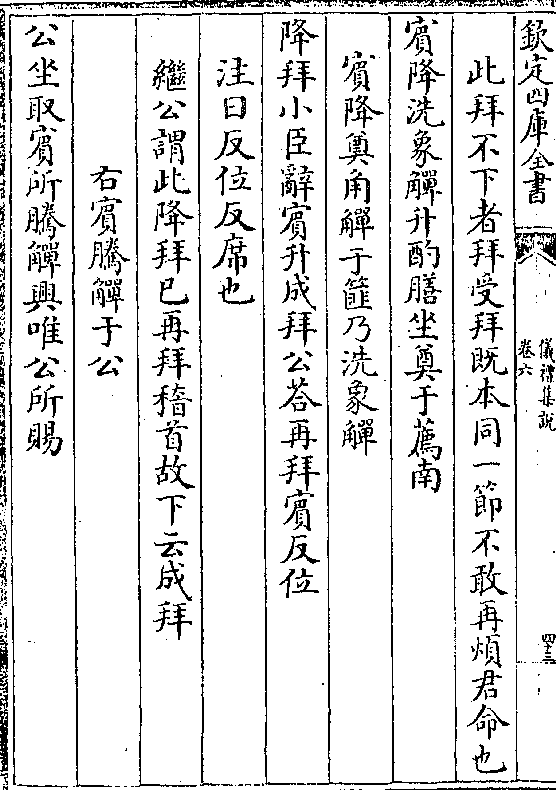 欽定四庫全書
儀禮集說
卷六
四十三
此拜不下者拜受拜既本同一節不敢再煩君命也
賓降洗象觶升酌膳坐奠于薦南
賓降奠角觶于篚乃洗象觶
降拜小臣辭賓升成拜公荅再拜賓反位
注曰反位反席也
繼公謂此降拜已再拜稽首故下云成拜
右賓騰觶于公
公坐取賓所騰觶興唯公所賜